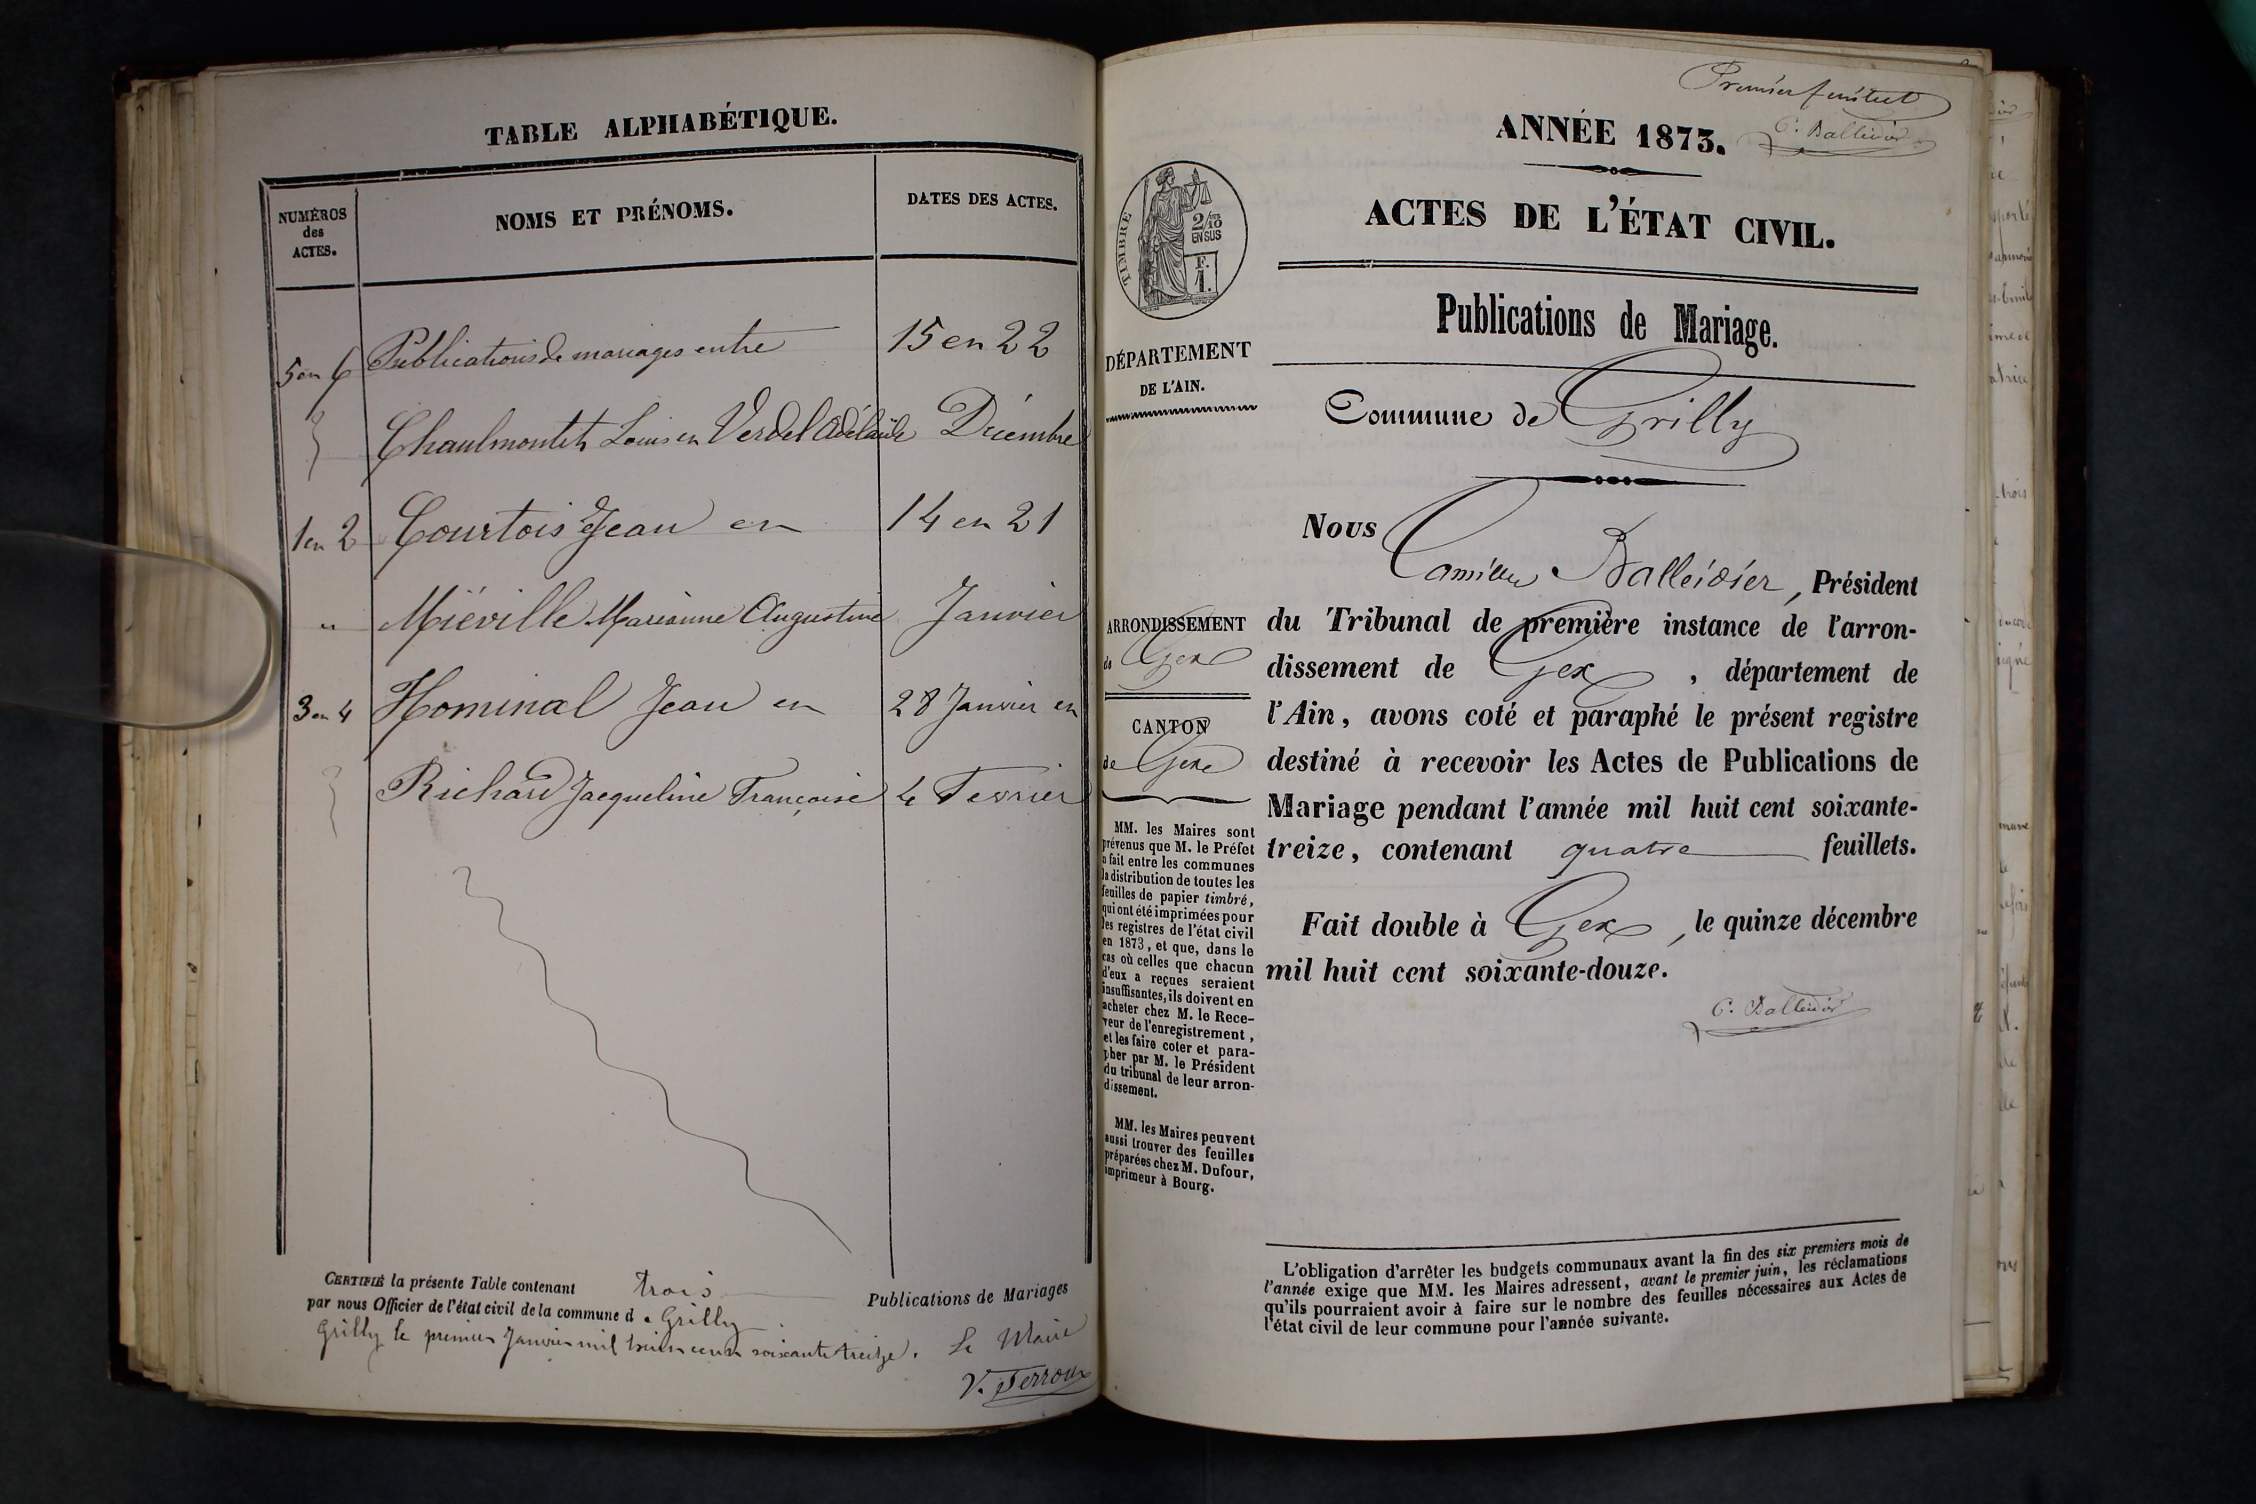 TABLE ALPHABÉTIQUE.
NUMÉROS
des
ACTES.
NOMS ET PRÉNOMS.
DATES DES ACTES.
5 en 6 Publications de mariages entre 15 en 22
Chaulmontet Louis en Verdel Adélaïde Décembre
1 en 2 Courtois Jean en 14 en 21
" Miéville Marianne Augustine Janvier
3 en 4 Hominal Jean en 28 Janvier en
Richard Jacqueline Françoise 4 Fevrier
CERTIFIÉ la présente Table contenant trois Publications de Mariages
par nous Officier de l'état civil de la commune d e Grilly
Grilly le premier Janvier mil huit cent soixante treize. Le Maire
V. Perroux
Premier feuillet
C. Balleidier
ANNÉE 1873.
ACTES DE L'ÉTAT CIVIL.
TIMBRE
2/10
EN SUS
F.
1.
Publications de Mariage.
DÉPARTEMENT
DE L'AIN.
Commune de Grilly
ARRONDISSEMENT
de Gex
CANTON
de Gex
MM. les Maires sont
prévenus que M. le Préfet
a fait entre les communes
la distribution de toutes les
feuilles de papier timbré,
qui ont été imprimées pour
les registres de l'état civil
en 1873, et que, dans le
cas où celles que chacun
d'eux a reçues seraient
insuffisantes, ils doivent en
acheter chez M. le Rece-
veur de l'enregistrement,
et les faire coter et para-
pher par M. le Président
du tribunal de leur arron-
dissement.
MM. les Maires peuvent
aussi trouver des feuilles
préparées chez M. Dufour,
imprimeur à Bourg.
Nous Camille Balleidier, Président
du Tribunal de première instance de l'arron-
dissement de Gex, département de
l'Ain, avons coté et paraphé le présent registre
destiné à recevoir les Actes de Publications de
Mariage pendant l'année mil huit cent soixante-
treize, contenant quatre feuillets.
Fait double à Gex, le quinze décembre
mil huit cent soixante-douze.
C. Balleidier
L'obligation d'arrêter les budgets communaux avant la fin des six premiers mois de
l'année exige que MM. les Maires adressent, avant le premier juin, les réclamations
qu'ils pourraient avoir à faire sur le nombre des feuilles nécessaires aux Actes de
l'état civil de leur commune pour l'année suivante.